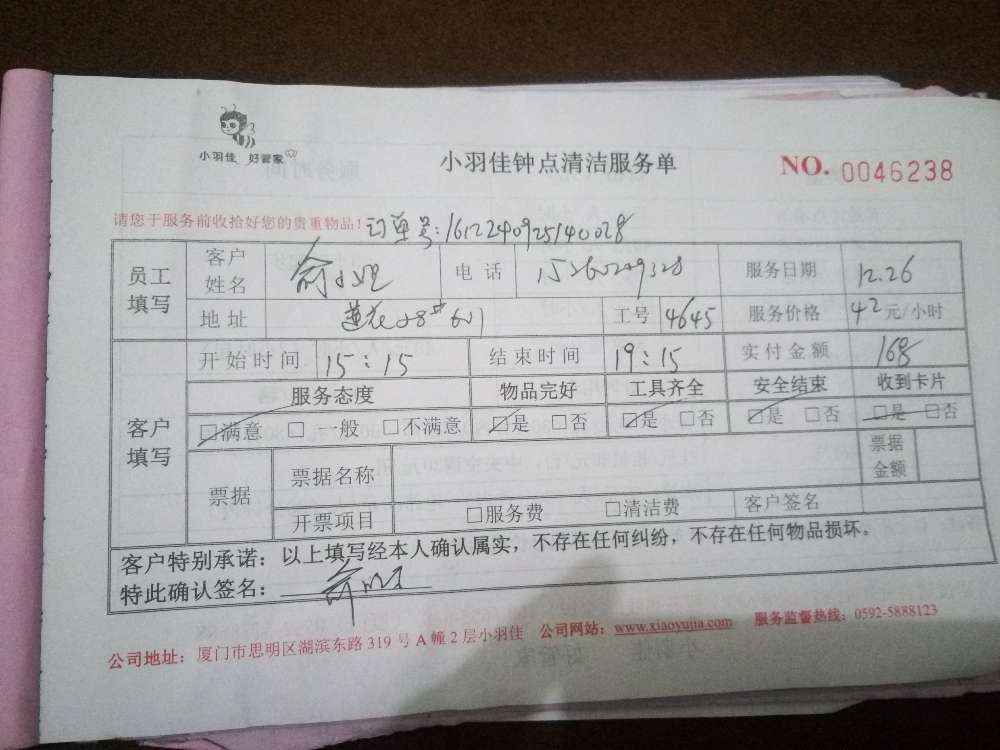 小羽佳 好管家
小羽佳钟点清洁服务单
NO. 0046238
请您于服务前收拾好您的贵重物品! 订单号:1612240925140028
员工填写 客户姓名 俞小姐 电话 服务日期 12.26
地址 工号 4645 服务价格 42元/小时
客户填写 开始时间 15:15 结束时间 19:15 实付金额 168
服务态度 物品完好 工具齐全 安全结束 收到卡片
满意 一般 不满意 是 否 是 否 是 否 是 否
票据 票据名称 票据金额
开票项目 服务费 清洁费 客户签名
客户特别承诺:以上填写经本人确认属实,不存在任何纠纷,不存在任何物品损坏。
特此确认签名:
公司地址:厦门市思明区湖滨东路319号A幢2层小羽佳 公司网站:www.xiaoyujia.com 服务监督热线:0592-5888123